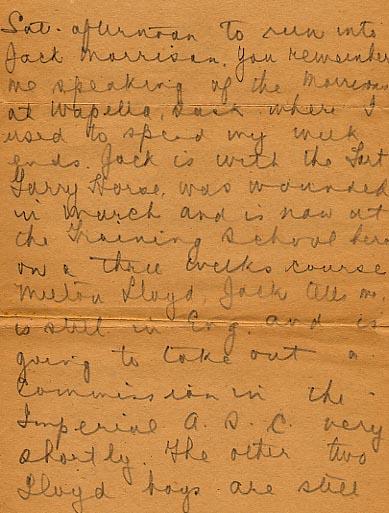 Sat. afternoon to run into
Jack Morrison. You remember
me speaking of the Morrisons
at Wapella, Sask where I
used to spend my week
ends. Jack is with the Fort
Garry Horse, was wounded
in March and is now at
the Training School here
on a three weeks course
Milton Lloyd, Jack tells me,
is still in Eng. and is
going to take out a
Commission in the
Imperial A. S. C. very
shortly. The other two
Lloyd boys are still